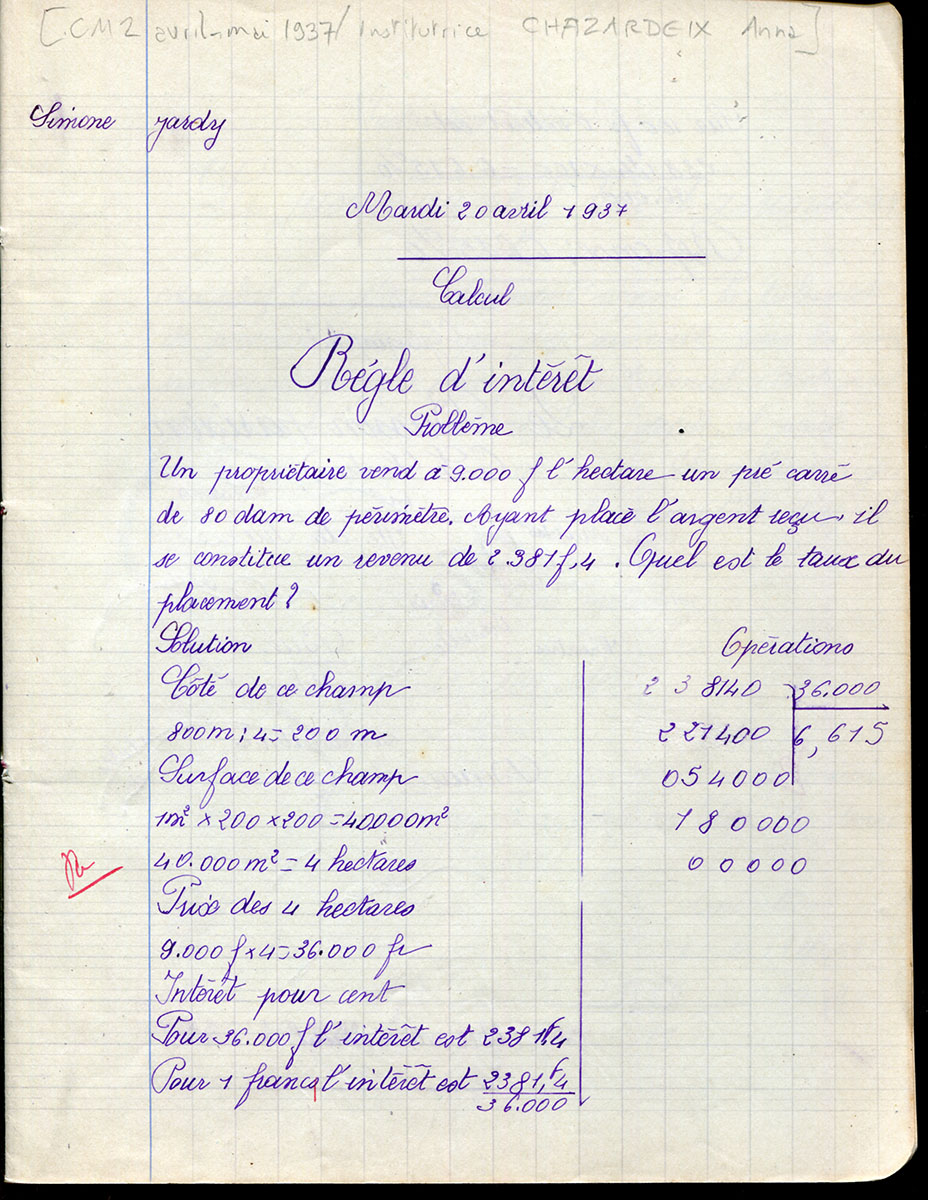 [.CM2 avril-mai 1937/ Institutrice CHAZARDEIX Anna]
Simone Jardy
Mardi 20 avril 1937
Calcul
Règle d'intérêt
Problème
Un propriétaire vend à 9.000 f l'hectare un pré carré
de 80 dam de périmètre. Ayant placé l'argent reçu, il
se constitue un revenu de 2.381f,4. Quel est le taux du
placement ?
Solution
Opérations
Côté de ce champ
800m : 4 = 200 m
Surface de ce champ
1m² × 200 × 200 = 40000m²
40.000m² = 4 hectares
Prix des 4 hectares
9.000 f × 4 = 36.000 fr
Intérêt pour cent
Pour 36.000 f l'intérêt est 2381f4
Pour 1 franc l'intérêt est 2381,f4
36.000
2 3 8140 36.000
221400 6,615
054000
180000
00000